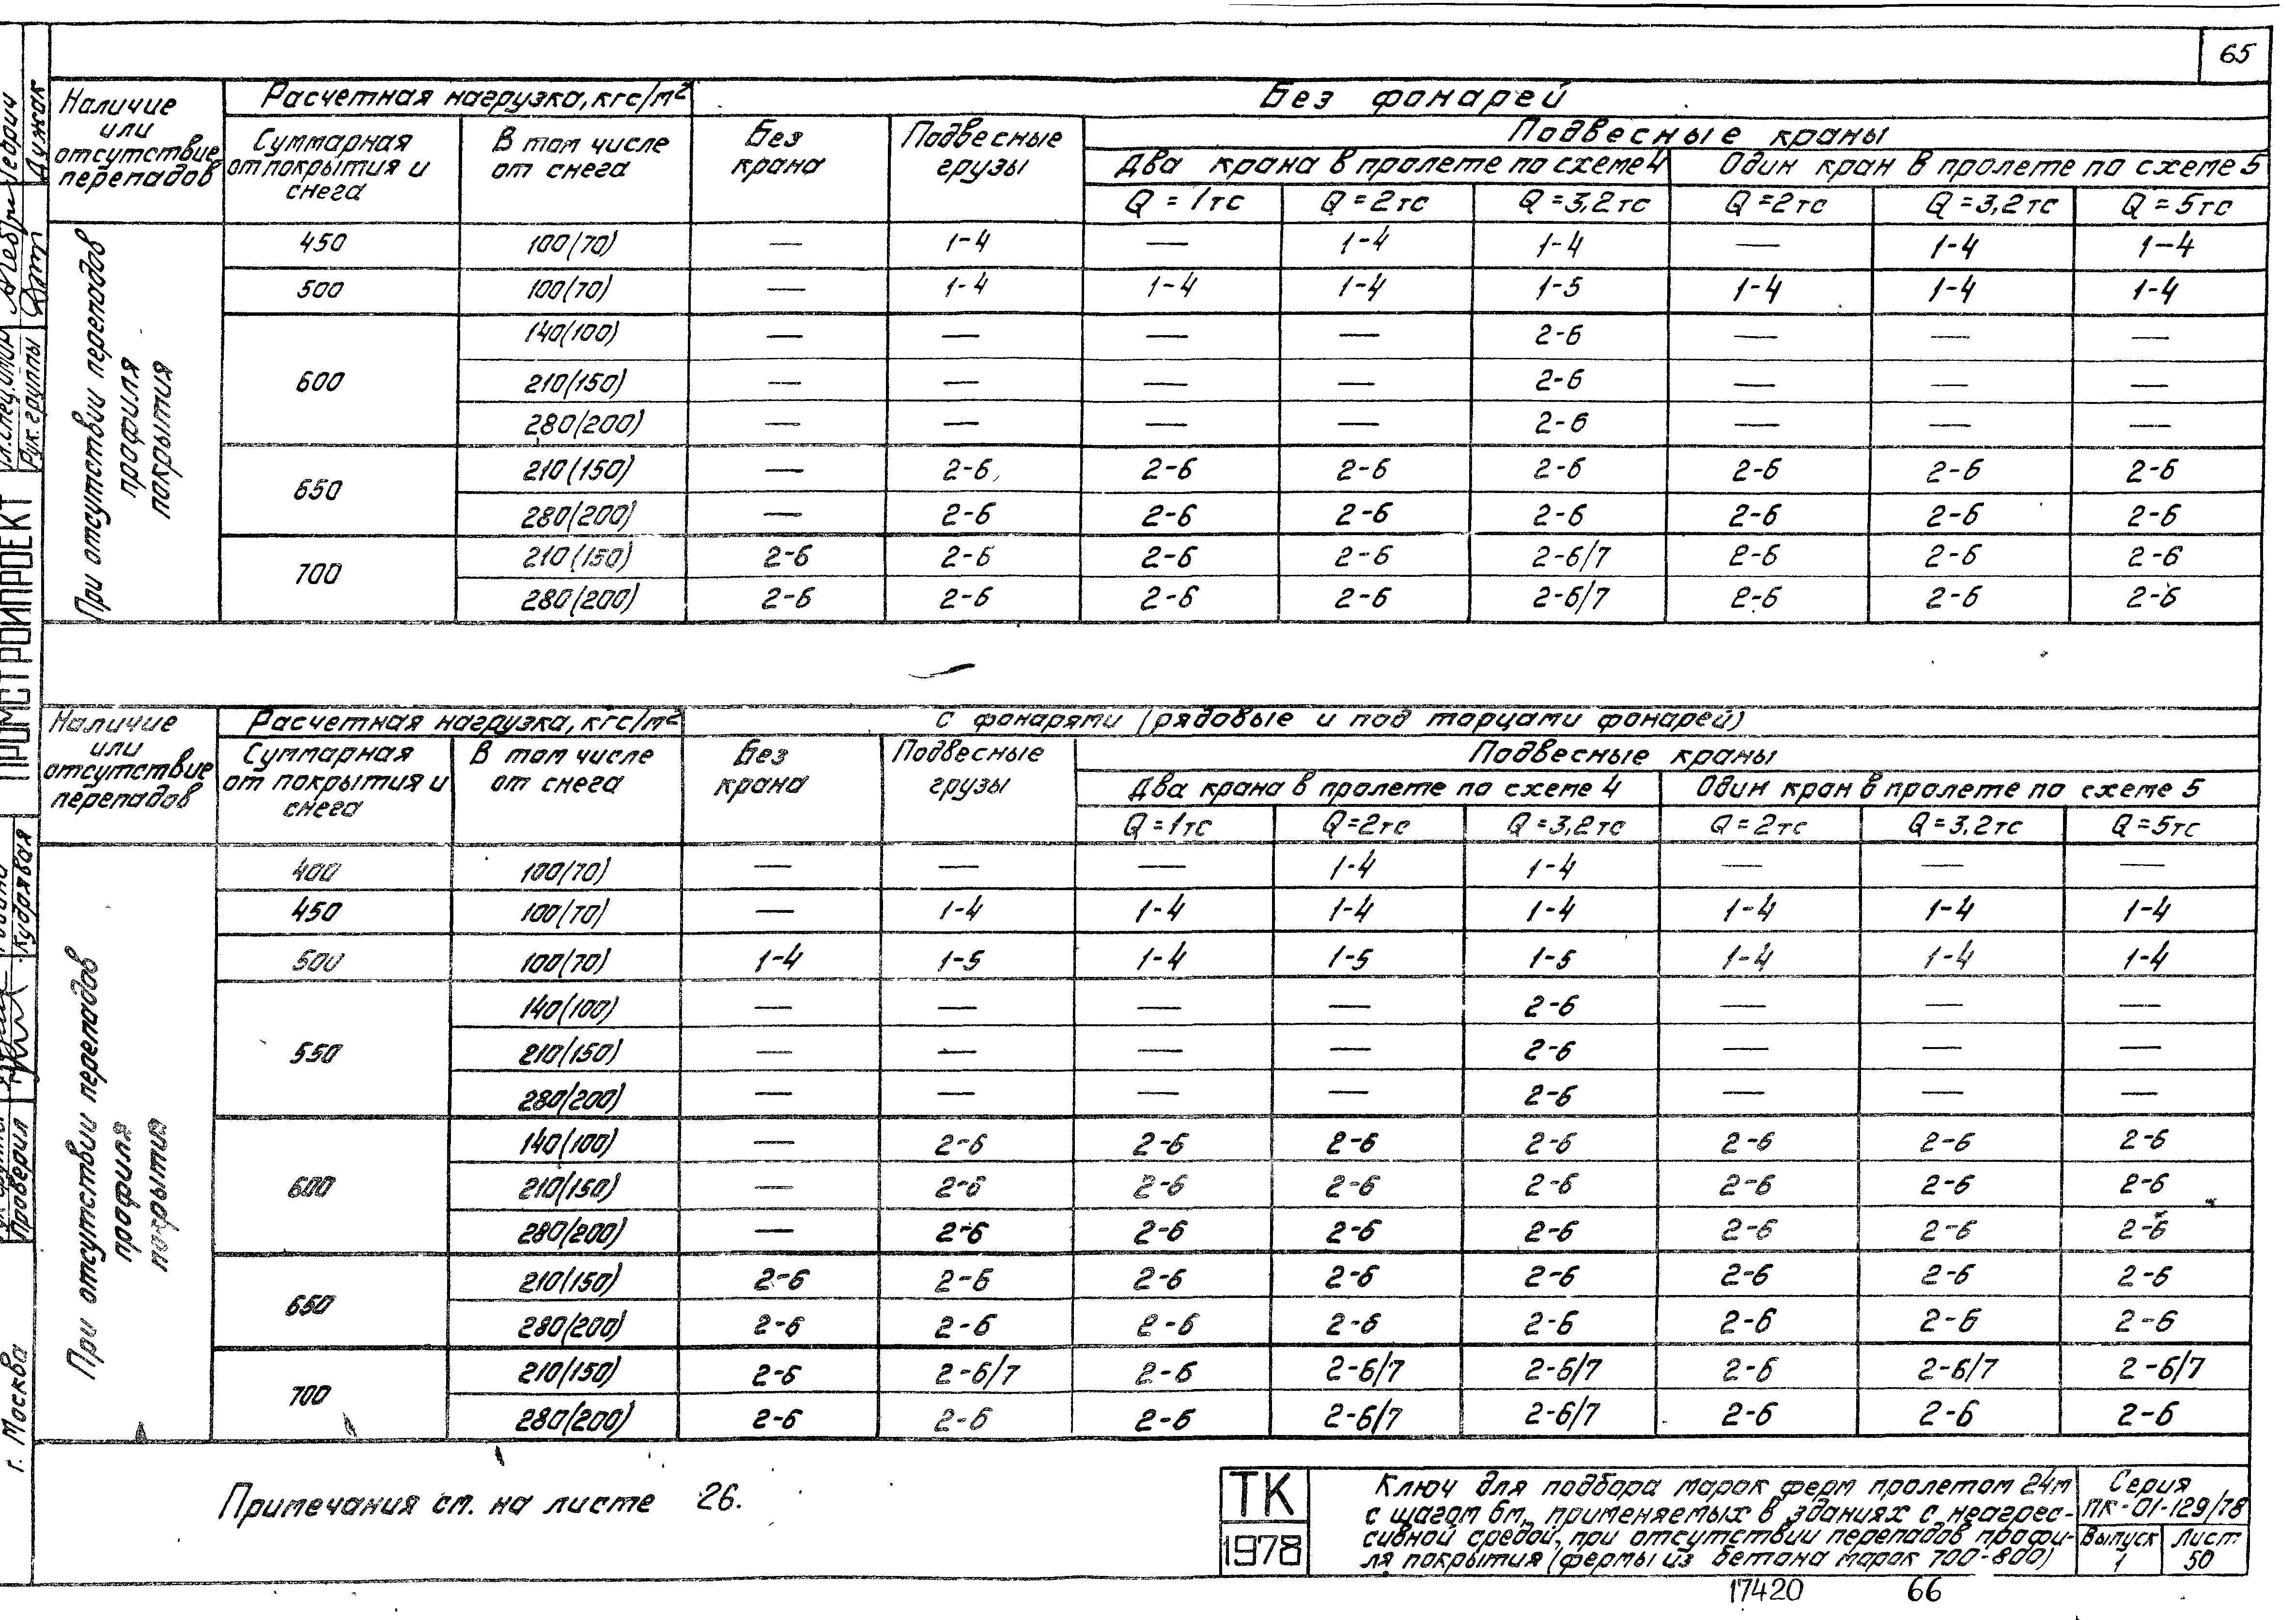 65
Наличие или отсутствие перепадов
Расчетная нагрузка, кгс/м²
Без фонарей
Суммарная от покрытия и снега
В том числе от снега
Без крана
Подвесные грузы
Подвесные краны
Два крана в пролете по схеме 4
Один кран в пролете по схеме 5
Q = 1тс Q = 2тс Q = 3,2тс Q = 2тс Q = 3,2тс Q = 5тс
При отсутствии перепадов профиля покрытия
450 100(70) — 1-4 — 1-4 1-4 — 1-4 1-4
500 100(70) — 1-4 1-4 1-4 1-5 1-4 1-4 1-4
600 140(100) — — — — 2-6 — — —
210(150) — — — — 2-6 — — —
280(200) — — — — 2-6 — — —
650 210(150) — 2-6 2-6 2-6 2-6 2-6 2-6 2-6
280(200) — 2-6 2-6 2-6 2-6 2-6 2-6 2-6
700 210(150) 2-6 2-6 2-6 2-6 2-6/7 2-6 2-6 2-6
280(200) 2-6 2-6 2-6 2-6 2-6/7 2-6 2-6 2-6
Наличие или отсутствие перепадов
Расчетная нагрузка, кгс/м²
С фонарями (рядовые и под торцами фонарей)
Суммарная от покрытия и снега
В том числе от снега
Без крана
Подвесные грузы
Подвесные краны
Два крана в пролете по схеме 4
Один кран в пролете по схеме 5
Q = 1тс Q = 2тс Q = 3,2тс Q = 2тс Q = 3,2тс Q = 5тс
При отсутствии перепадов профиля покрытия
400 100(70) — — — 1-4 1-4 — — —
450 100(70) — 1-4 1-4 1-4 1-4 1-4 1-4 1-4
500 100(70) 1-4 1-5 1-4 1-5 1-5 1-4 1-4 1-4
550 140(100) — — — — 2-6 — — —
210(150) — — — — 2-6 — — —
280(200) — — — — 2-6 — — —
600 140(100) — 2-6 2-6 2-6 2-6 2-6 2-6 2-6
210(150) — 2-6 2-6 2-6 2-6 2-6 2-6 2-6
280(200) — 2-6 2-6 2-6 2-6 2-6 2-6 2-6
650 210(150) 2-6 2-6 2-6 2-6 2-6 2-6 2-6 2-6
280(200) 2-6 2-6 2-6 2-6 2-6 2-6 2-6 2-6
700 210(150) 2-6 2-6/7 2-6 2-6/7 2-6/7 2-6 2-6/7 2-6/7
280(200) 2-6 2-6 2-6 2-6/7 2-6/7 2-6 2-6 2-6
Примечания см. на листе 26.
ТК
1978
Ключ для подбора марок ферм пролетом 24м
с шагом 6м, применяемых в зданиях с неагрес-
сивной средой, при отсутствии перепадов профи-
ля покрытия (фермы из бетона марок 700-800)
Серия
ПК-01-129/78
Выпуск 1
Лист 50
17420 66
Дужак
Рук. группы
ПРОМСТРОЙПРОЕКТ
Кудрявая
Проверил
г. Москва